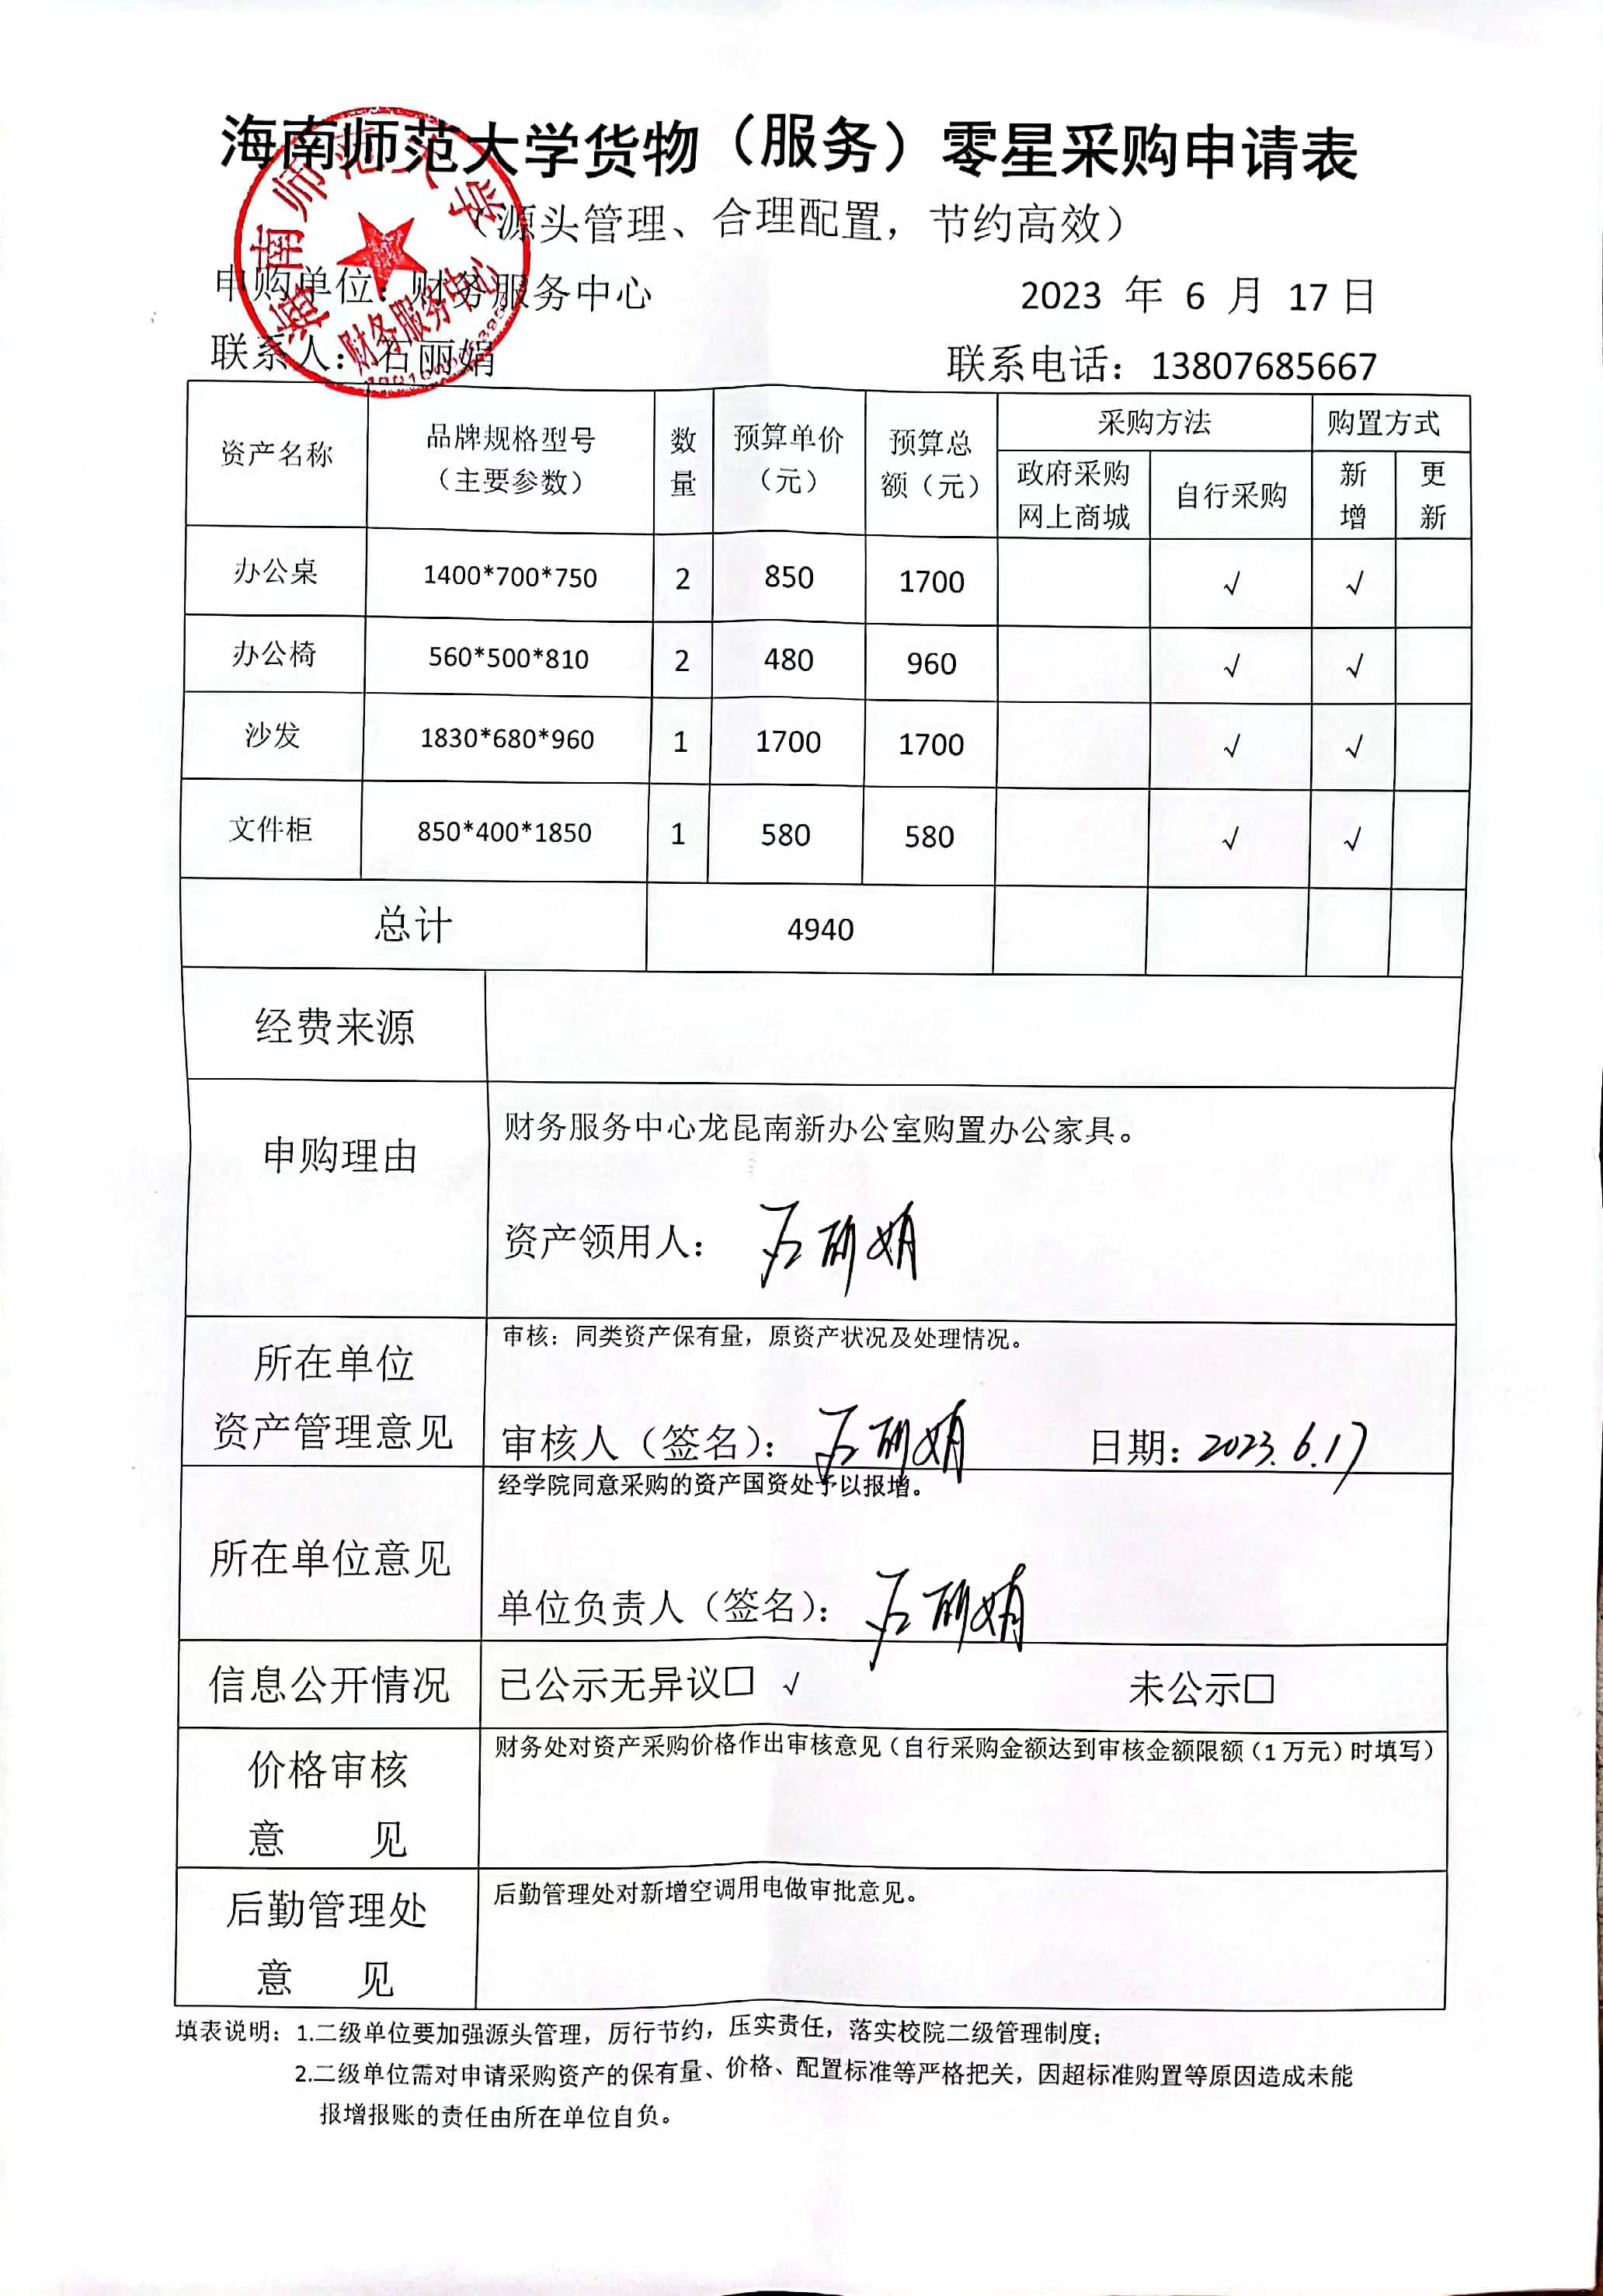 海南师范大学货物（服务）零星采购申请表
（源头管理、合理配置，节约高效）
申购单位：财务服务中心 2023 年 6 月 17日
联系人： 石丽娟 联系电话：13807685667
海南师范大学
财务服务中心
资产名称 品牌规格型号（主要参数） 数量 预算单价（元） 预算总额（元） 采购方法 购置方式
政府采购网上商城 自行采购 新增 更新
办公桌 1400*700*750 2 850 1700 √ √
办公椅 560*500*810 2 480 960 √ √
沙发 1830*680*960 1 1700 1700 √ √
文件柜 850*400*1850 1 580 580 √ √
总计 4940
经费来源
申购理由 财务服务中心龙昆南新办公室购置办公家具。
资产领用人： 石丽娟
所在单位
资产管理意见
审核：同类资产保有量，原资产状况及处理情况。
审核人（签名）： 石丽娟 日期：2023.6.17
所在单位意见
经学院同意采购的资产国资处予以报增。
单位负责人（签名）： 石丽娟
信息公开情况 已公示无异议□ √ 未公示□
价格审核
意 见
财务处对资产采购价格作出审核意见（自行采购金额达到审核金额限额（1万元）时填写）
后勤管理处
意 见
后勤管理处对新增空调用电做审批意见。
填表说明：1.二级单位要加强源头管理，厉行节约，压实责任，落实校院二级管理制度；
2.二级单位需对申请采购资产的保有量、价格、配置标准等严格把关，因超标准购置等原因造成未能
报增报账的责任由所在单位自负。